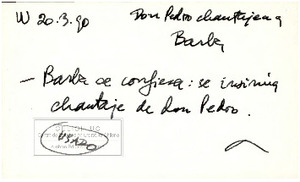 W 20.3.90
Don Pedro chantajea a
Barba
— Barba se confiesa: se insinúa
chantaje de don Pedro.
USADO